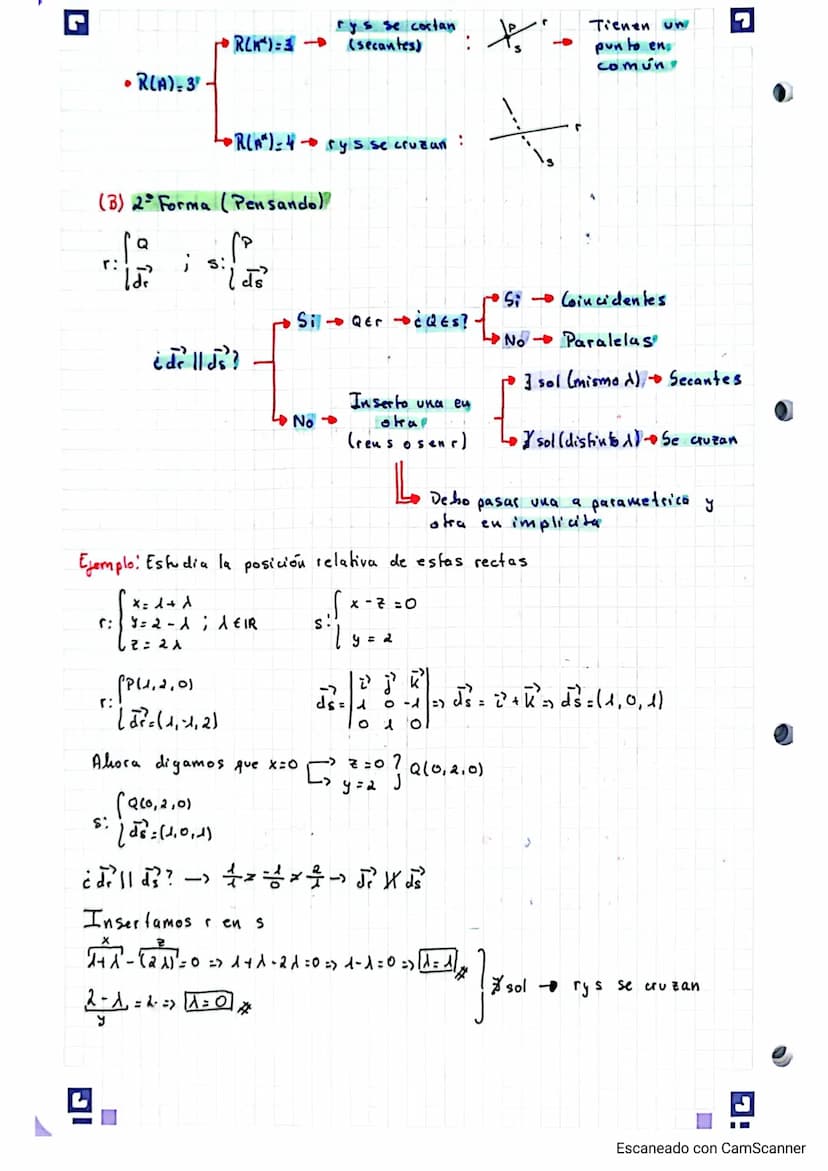 r y s se cortan
(secantes)
R(A*)=3 → : P r s → Tienen un
punto en
común
• R(A)=3
R(A*)=4 → r y s se cruzan : r s
(B) 2ª Forma (Pensando)
r: { Q ; s: { P
dr ds
¿dr || ds?
Si → Q∈r → ¿Q∈s?
Si → Coincidentes
No → Paralelas
No → Inserto una en
otra
(r en s o s en r)
∃ sol (mismo λ) → Secantes
∄ sol (distinto λ) → Se cruzan
Debo pasar una a paramétrica y
otra en implícita
Ejemplo: Estudia la posición relativa de estas rectas
r: { x = 1 + λ
y = 2 - λ ; λ ∈ IR
z = 2λ
s: { x - z = 0
y = 2
r: { P(1,2,0)
dr = (1,-1,2)
ds = | i j k |
| 1 0 -1 | => ds = i + k => ds = (1,0,1)
| 0 1 0 |
Ahora digamos que x=0 → z=0 } Q(0,2,0)
→ y=2
s: { Q(0,2,0)
ds = (1,0,1)
¿dr || ds? → 1/1 ≠ -1/0 ≠ 2/1 → dr ∦ ds
Insertamos r en s
x z
1+λ - (2λ) = 0 => 1+λ-2λ=0 => 1-λ=0 => λ=1
2-λ = 2 => λ=0
y
∄ sol → r y s se cruzan
Escaneado con CamScanner